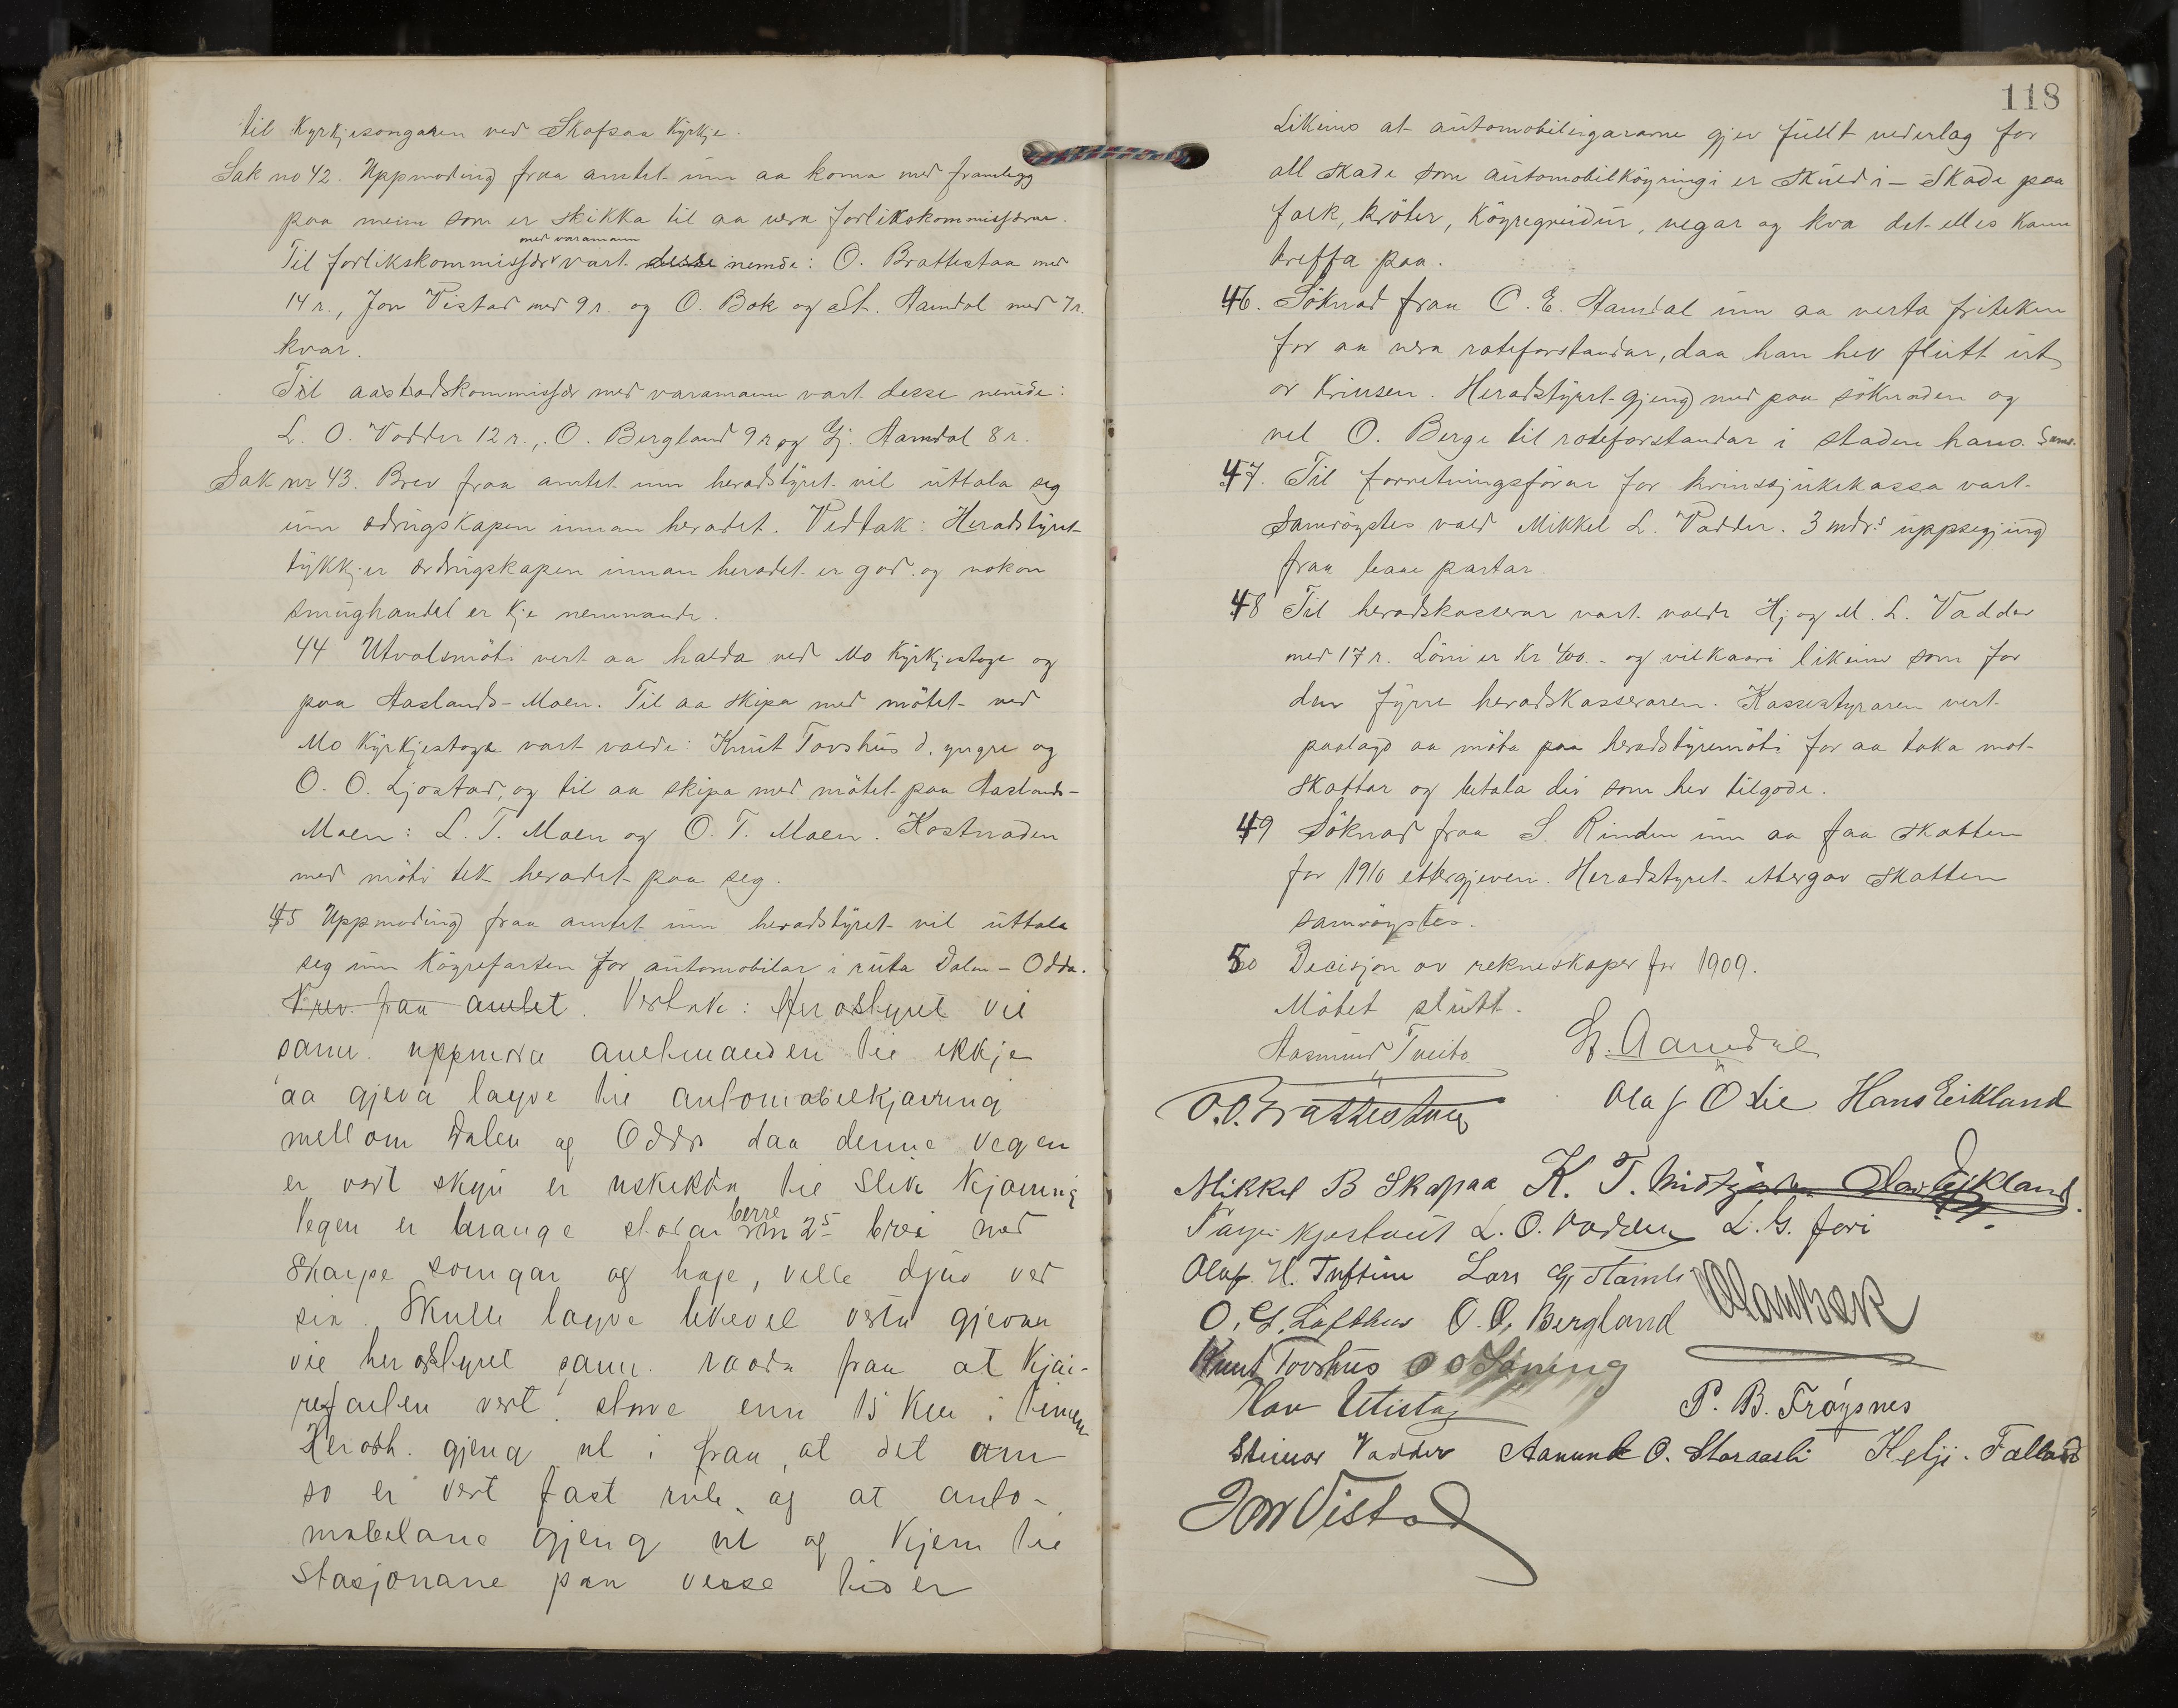 til Kyrkjesongaren ved Skafsaa Kyrkje.
Sak no 42. Uppmoding fraa amtet um aa koma med framlegg
paa menn som er skikka til aa vera forlikskommissærar.
med varamann
Til forlikskommissær vart desse nemde: O. Brattestaa med
14 r., Jon Vistad med 9 r. og O. Bok og St. Aamdal med 7 r.
kvar.
Til aastadskommissær med varamann vart desse nemde:
L. O. Vadder 12 r., O. Bergland 9 r og Gj. Aamdal 8 r.
Sak nr 43. Brev fraa amtet um heradstyret vil uttala seg
um ædrugskapen innan heradet. Vedtak: Heradstyret
tykkjer ædrugskapen innan heradet er god og nokon
smughandel er kje nemnande.
44 Utvalsmöti vert aa halda ved Mo Kyrkjestoge og
paa Aaslands-Moen. Til aa skipa med mötet ved
Mo Kyrkjestoge vart valde: Knut Tovshus d. yngre og
O. O. Ljostad, og til aa skipa med mötet paa Aaslands-
Moen: L. T. Moen og O. T. Moen. Kostnaden
med möti tek heradet paa seg.
45 Uppmoding fraa amtet um heradstyret vil uttala
seg um Köyrefarten for automobilar i ruta Dalen - Odda.
Brev fraa amtet. Vedtak: Heradstyret vil
samr. uppmoda amtmanden til ikkje
aa gjeva løyve til automobilkjøring
mellom Dalen og Odda daa denne vegen
er uskikka til slik kjøring
Vegen er trange stodar berre 2 5 brei med
skarpe svingar og høge, ville djuv ved
sia. Skulle løyve likevel verta gjevan
vil heradstyret samr. raada fraa at kjøi-
refarten vert större enn 15 Km i timen
Heradst. gjeng ut i fraa at det
so er vert fast rute og at auto-
mobilane gjeng ut og kjem til
stasjonane paa visse tider
118
Likeins at automobileigarane gjev fullt vederlag for
all skade som automobilköyringi er skuld i - Skade paa
folk, kröter, Köyregreidur, vegar og kva det elles kann
treffa paa.
46. Söknad fraa O. E. Aamdal um aa verta friteken
for aa vera roteforstandar, daa han hev flutt ut
or Krinsen. Heradstyret gjeng med paa söknaden og
vel O. Berge til roteforstandar i staden hans. Samr.
47. Til forretningsförar for krinssjukekassa vart
samröystes vald Mikkel L. Vadder. 3 mdrs uppsegjing
fraa baae partar.
48 Til heradskasserar vart valde Hj og M. L. Vadder
med 17 r. Löni er Kr 400.- og vilkaari likeins som for
den fyrre heradskasseraren. Kassestyraren vert
paalagd aa möta paa heradstyremöti for aa taka mot
skattar og betala dei som hev tilgode.
49 Söknad fraa S. Rinden um aa faa skatten
for 1910 ettergjeven. Heradstyret ettergav skatten
samröystes.
50 Decisjon av rekneskaper for 1909.
Mötet slutt.
Aasmund Tveito Gj. Aamdal
O. O. Brattestaa Olaf O Lie Hans Eikland
Mikkel B Skafsaa K. T. Midtgarden Olav Eikland
Kjerstaul L. O. Vadder L. G. Jori
Olaf. H. Tuftin Lars
O. G. Lofthus O. O. Bergland Olav Bok
Knut Tovshus O O
Utistog P. B. Fröysnes
Steinar Vadder Aanund O. Storaasli Helje. Falland
Jon Vistad